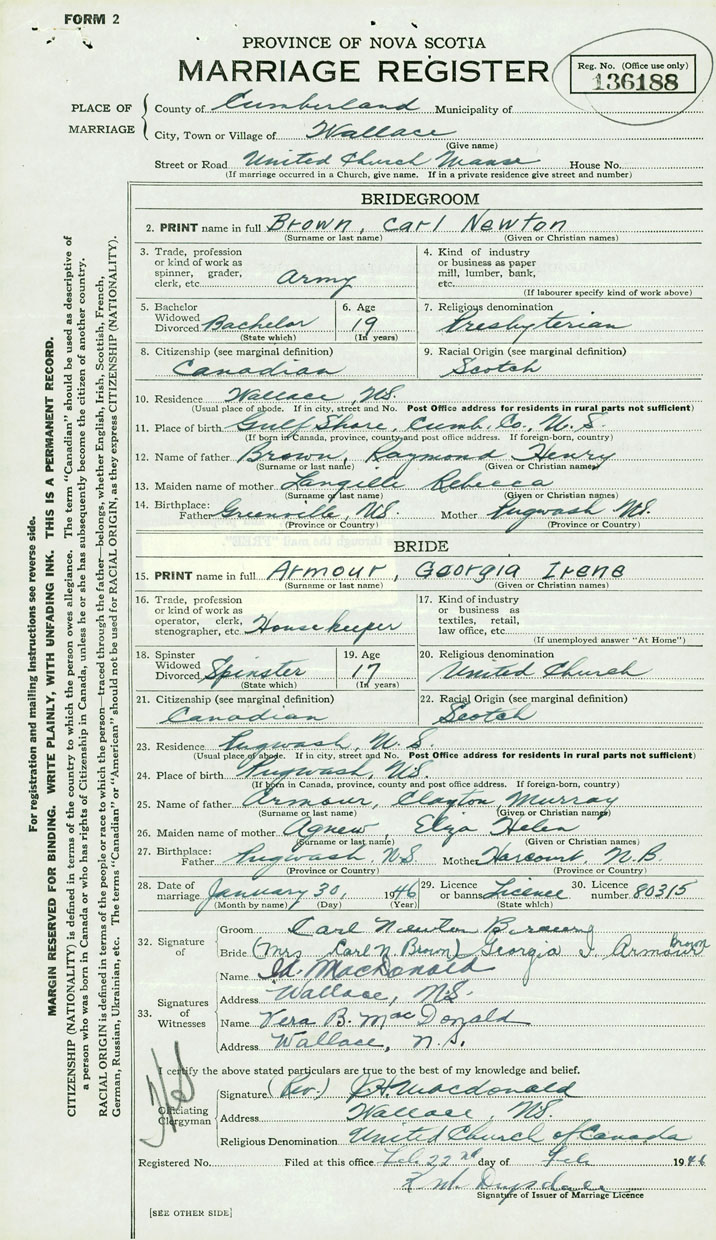 FORM 2
PROVINCE OF NOVA SCOTIA
MARRIAGE REGISTER
Reg. No. (Office use only)
136188
PLACE OF MARRIAGE
County of Cumberland Municipality of
City, Town or Village of Wallace
(Give name)
Street or Road United Church Manse House No.
(If marriage occurred in a Church, give name. If in a private residence give street and number)
BRIDEGROOM
2. PRINT name in full Brown, Carl Newton
(Surname or last name) (Given or Christian names)
3. Trade, profession or kind of work as spinner, grader, clerk, etc. Army
4. Kind of industry or business as paper mill, lumber, bank, etc.
(If labourer specify kind of work above)
5. Bachelor Widowed Divorced Bachelor (State which)
6. Age 19 (In years)
7. Religious denomination Presbyterian
8. Citizenship (see marginal definition) Canadian
9. Racial Origin (see marginal definition) Scotch
10. Residence Wallace, N.S.
(Usual place of abode. If in city, street and No. Post Office address for residents in rural parts not sufficient)
11. Place of birth Gulf Shore, Cumb. Co., N.S.
(If born in Canada, province, county and post office address. If foreign-born, country)
12. Name of father Brown, Raymond Henry
(Surname or last name) (Given or Christian names)
13. Maiden name of mother Langille Rebecca
(Surname or last name) (Given or Christian names)
14. Birthplace: Father Greenville, N.S. Mother Pugwash N.S.
(Province or Country) (Province or Country)
BRIDE
15. PRINT name in full Armour, Georgia Irene
(Surname or last name) (Given or Christian names)
16. Trade, profession or kind of work as operator, clerk, stenographer, etc. Housekeeper
17. Kind of industry or business as textiles, retail, law office, etc.
(If unemployed answer "At Home")
18. Spinster Widowed Divorced Spinster (State which)
19. Age 17 (In years)
20. Religious denomination United Church
21. Citizenship (see marginal definition) Canadian
22. Racial Origin (see marginal definition) Scotch
23. Residence Pugwash, N.S.
(Usual place of abode. If in city, street and No. Post Office address for residents in rural parts not sufficient)
24. Place of birth Pugwash, N.S.
(If born in Canada, province, county and post office address. If foreign-born, country)
25. Name of father Armour, Clayton Murray
(Surname or last name) (Given or Christian names)
26. Maiden name of mother Agnew, Eliza Helen
(Surname or last name) (Given or Christian names)
27. Birthplace: Father Pugwash, N.S. Mother Harcourt, N.B.
(Province or Country) (Province or Country)
28. Date of marriage January 30, 1946
(Month by name) (Day) (Year)
29. Licence or banns Licence (State which)
30. Licence number 80315
32. Signature of
Groom Carl Newton Brown
Bride (Mrs Carl N. Brown) Georgia I. Armour Brown
33. Signatures of Witnesses
Name MacDonald
Address Wallace, N.S.
Name Vera B. MacDonald
Address Wallace, N.S.
I certify the above stated particulars are true to the best of my knowledge and belief.
Officiating Clergyman
Signature (Rev.) J.H. Macdonald
Address Wallace, N.S.
Religious Denomination United Church of Canada
Registered No. Filed at this office Feb 22nd day of Feb 1946
Signature of Issuer of Marriage Licence
[SEE OTHER SIDE]
For registration and mailing instructions see reverse side.
MARGIN RESERVED FOR BINDING. WRITE PLAINLY, WITH UNFADING INK. THIS IS A PERMANENT RECORD.
CITIZENSHIP (NATIONALITY) is defined in terms of the country to which the person owes allegiance. The term "Canadian" should be used as descriptive of
a person who was born in Canada or who has rights of Citizenship in Canada, unless he or she has subsequently become the citizen of another country.
RACIAL ORIGIN is defined in terms of the people or race to which the person—traced through the father—belongs, whether English, Irish, Scottish, French,
German, Russian, Ukrainian, etc. The terms "Canadian" or "American" should not be used for RACIAL ORIGIN, as they express CITIZENSHIP (NATIONALITY).